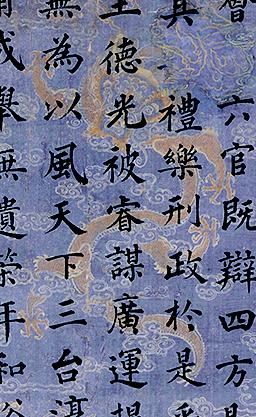 六官既辯四方是
其禮樂刑政於是
王德光被睿謀廣運
無為以風天下三台
成與無遺榮年和